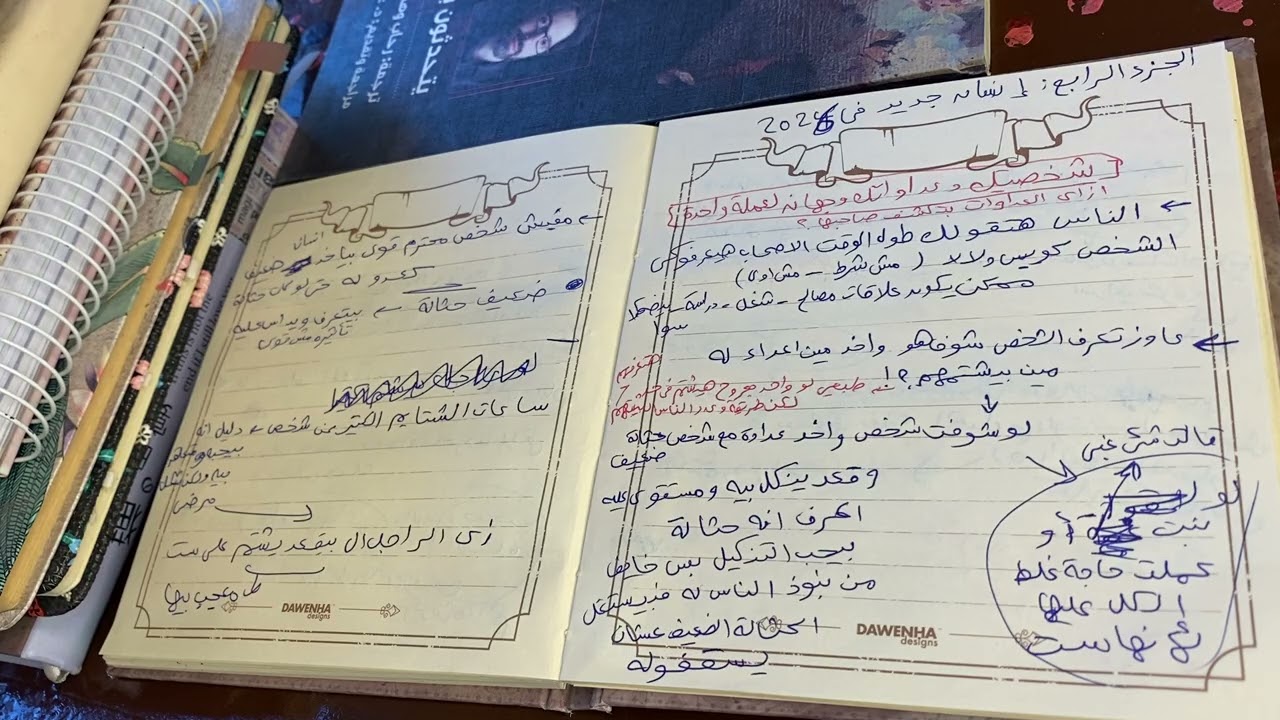 الجزء الرابع: إنسان جديد في 2026
شخصيتك وعداواتك وجهان لعملة واحدة
ازاي العداوات بتكشف صاحبها؟
← الناس هتقولك طول الوقت الاصحاب هيعرفوكي
الشخص كويس ولا لا (مش شرط - مش اوي)
ممكن يكون علاقات مصالح - شغل - دراسة -
سوا
← عاوز تعرف الشخص شوف هو واخد مين اعداء له
مين بيشتمهم؟!
طبيعي لو واحد مجروح هيشتم في
لكن طريقة وعدد الناس
لو شوفت شخص واخد عداوة مع شخص حثالة
ضعيف
وقعد ينكل بيه ومستقوي عليه
اعرف انه حثالة
بيحب التنكيل بس خايف
من نبوذ الناس له فبيستغل
الحثالة الضعيف عشان
يسقفوله
قالت مش عني
لو
بنت أو
عملت حاجة غلط
الكل عليها
رغم انها ست
DAWENHA
designs
← مفيش شخص محترم قوي بياخد انسان ضعيف
كعدو له حتى لو كان حثالة
ضعيف حثالة ← بيتعرف ويداس عليه
تأثيره مش قوي
ساعات الشتايم الكتير من شخص ← دليل انه
بيحبه
مرضي
زي الراجل ال بيقعد يشتم على ست
معجب بيها
DAWENHA
designs
يتحدثون